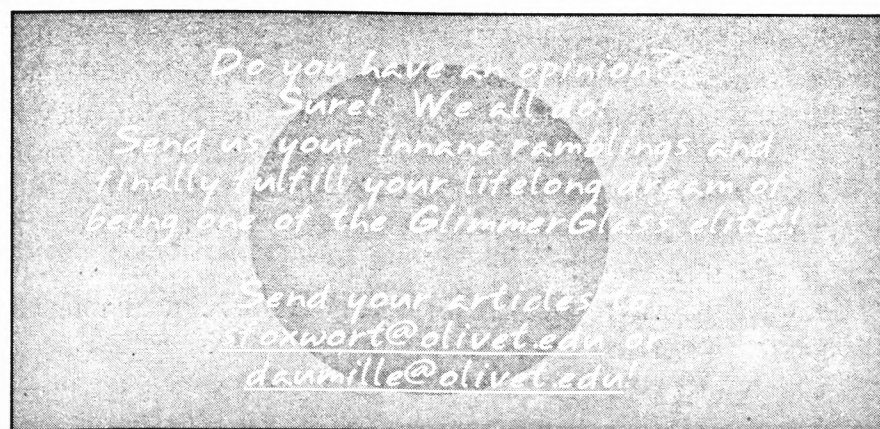 Do you have an opinion?
Sure! We all do!
Send us your innane ramblings and
finally fulfill your lifelong dream of
being one of the GlimmerGlass elite!!
Send your articles to
sfoxwort@olivet.edu or
daumille@olivet.edu!